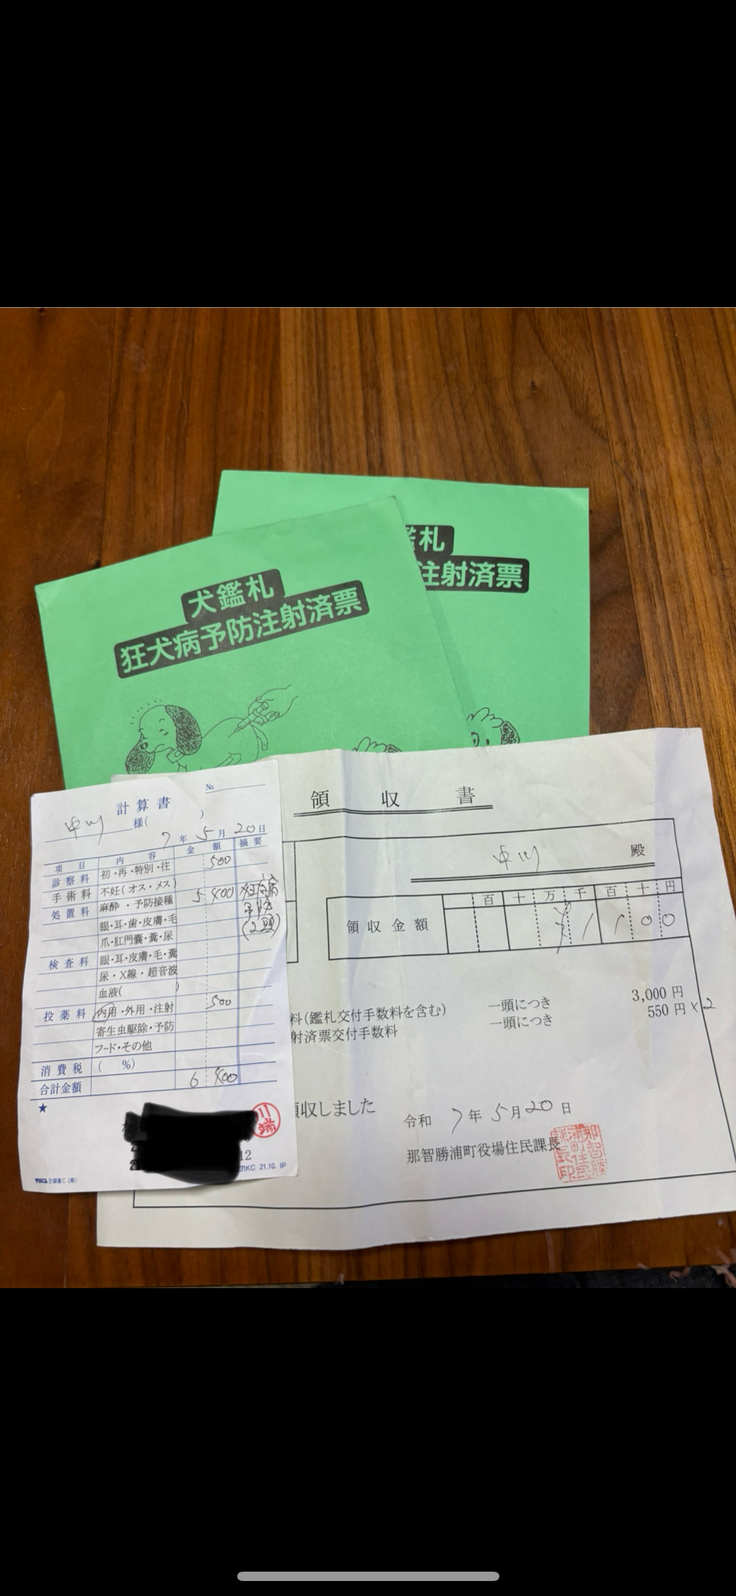 鑑札
注射済票
犬鑑札
狂犬病予防注射済票
No
計算書
中川 様( )
7年 5月 20日
項目 内容 金額 摘要
診察料 初・再・特別・往 500
手術料 不妊(オス・メス) 5 400 狂犬病
処置料 麻酔・予防接種 予防
眼・耳・歯・皮膚・毛 (2頭)
爪・肛門嚢・糞・尿
検査料 眼・耳・皮膚・毛・糞
尿・X線・超音波
血液(
投薬料 内用・外用・注射 500
寄生虫駆除・予防
フード・その他
消費税 ( %)
合計金額 6 400
★
12
21.10. IP
領収書
中川 殿
百 十 万 千 百 十 円
領収金額 ¥ 1 1 0 0
料(鑑札交付手数料を含む) 一頭につき 3,000円
射済票交付手数料 一頭につき 550円×2
領収しました
令和 7年 5月 20日
那智勝浦町役場住民課長